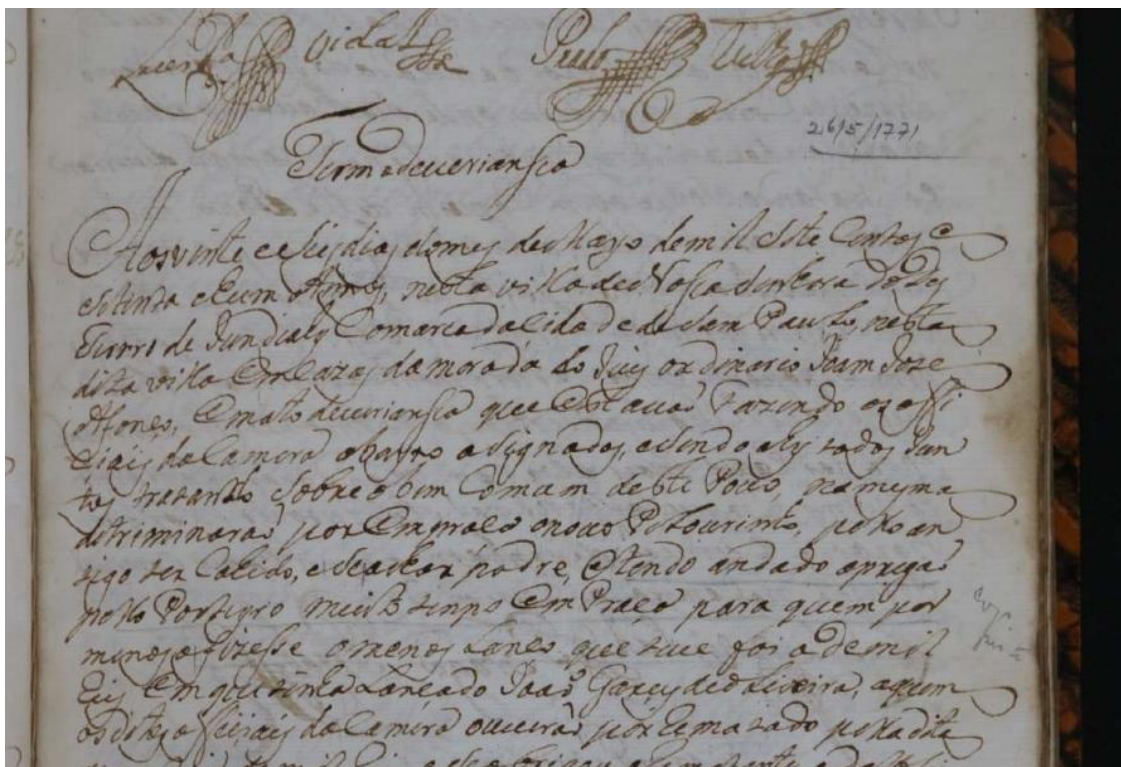 Lacerda Vidal Prado
26/5/1771
Termo de veriansa
Aos vinte e seis dias do mes de Mayo de mil e sete Centos e
setenta e hum Annos, nesta villa de Nossa Senhora do
Terro de Jundiahy Comarca da Cidade de Sam Paulo, nesta
dita villa Em Cazas da morada do Juis ordinario Joam Jose
Afonço, Em ato de veriansa que Estavaõ Fazendo os offi
ciais da Camera abaxo asignados, e sendo elles todos Jun
tos tratando sobre o bem Comum deste Povo, na mesma
detriminaraõ por Em praça o novo Pelourinho, pello an
tigo ter Cahido, e se achar podre, E tendo andado a pregaõ
pello Porteyro muito tempo Em Praça para quem por
menos o fizesse o menos Lanço que teve foi a de mil
reis Em que tinha Lançado Joaõ Garcia de oliveira, a quem
os ditos officiais da Camera ouveraõ por Rematado pella dita